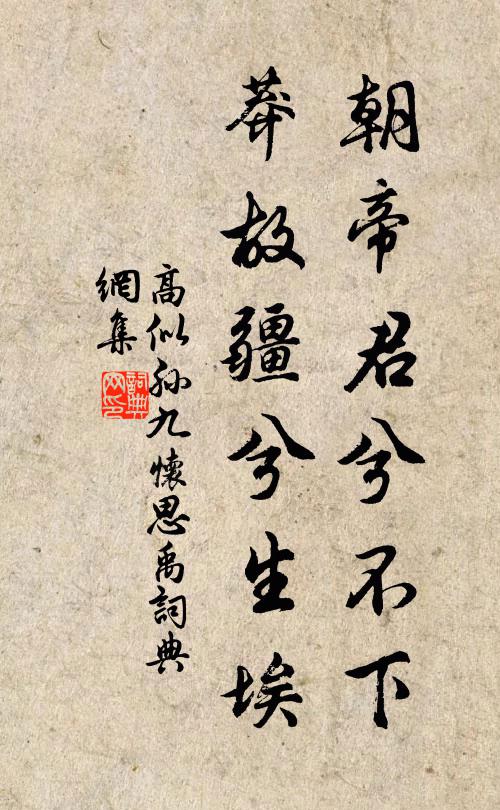 朝帝君兮不下
莽故疆兮生埃
高似孙九懷思禹詞典
網集
詞典
网印